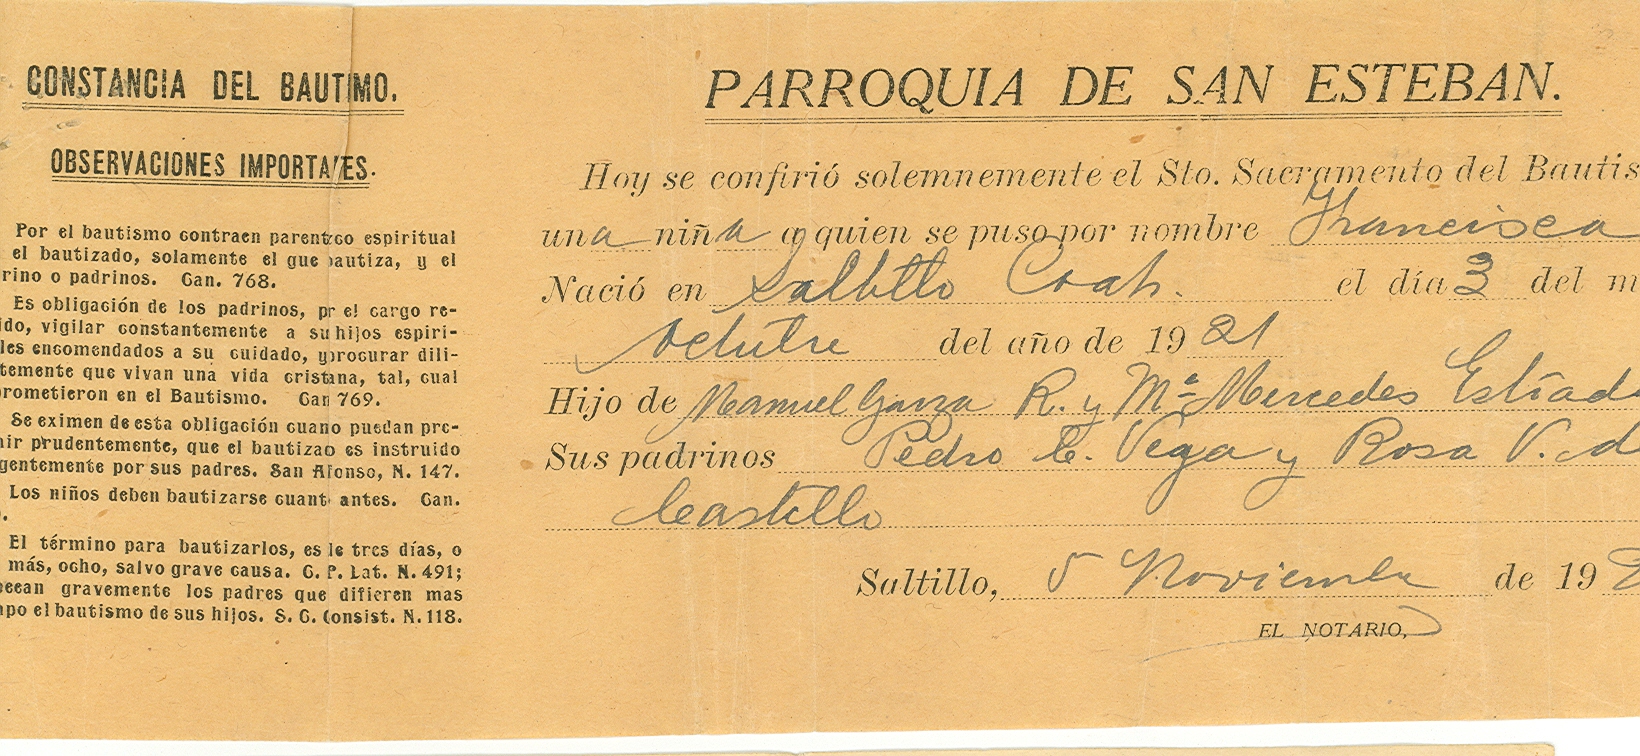 CONSTANCIA DEL BAUTIMO.
OBSERVACIONES IMPORTAES.
Por el bautismo contraen parentco espiritual
el bautizado, solamente el que bautiza, y el
rino o padrinos. Can. 768.
Es obligación de los padrinos, pr el cargo re-
ido, vigilar constantemente a su hijos espiri-
les encomendados a su cuidado, y procurar dili-
temente que vivan una vida cristana, tal, cual
rometieron en el Bautismo. Can 769.
Se eximen de esta obligación cuano puedan pre-
nir prudentemente, que el bautizao es instruido
gentemente por sus padres. San Afonso, N. 147.
Los niños deben bautizarse cuant antes. Can.
El término para bautizarlos, es le tres días, o
más, ocho, salvo grave causa. C. P. Lat. N. 491;
pecan gravemente los padres que difieren mas
mpo el bautismo de sus hijos. S. C. Consist. N. 118.
PARROQUIA DE SAN ESTEBAN.
Hoy se confirió solemnemente el Sto. Sacramento del Bautis
una niña a quien se puso por nombre Francisca
Nació en Saltillo Coah. el día 3 del m
octubre del año de 1921
Hijo de Manuel Garza R. y Ma. Mercedes Estrada
Sus padrinos Pedro C. Vega y Rosa V. d
Castillo
Saltillo, 5 Noviembre de 192
EL NOTARIO,